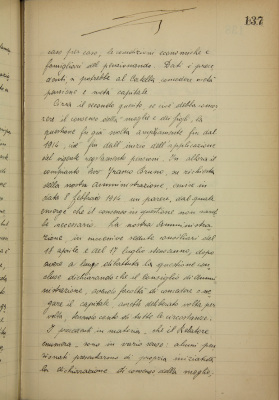 137
caso per caso, le condizioni economiche e
famigliari del pensionando. Dati i prece
denti si potrebbe al Catella concedere metà
pensione e metà capitale.
Circa il secondo quesito, se cioè debba concor
rere il consenso della moglie e dei figli, la
questione fu già svolta ampiamente fin dal
1914, ed fin dall'inizio dell'applicazione
del vigente regolamento pensioni. Fin allora il
compianto avv. Bruno, su richiesta
della nostra Amministrazione, emise in
data 8 febbraio 1914 un parere, dal quale
emerge che il consenso in questione non sareb
be necessario. La nostra Amministra
zione, in numerose sedute consiliari dal
18 aprile e del 17 luglio stesso anno, dopo
avere a lungo dibattuta la questione con
cluse dichiarando che il Consiglio di Ammi
nistrazione, avendo facoltà di concedere o ne
gare il capitale, avrebbe deliberato volta per
volta, tenuto conto di tutte le circostanze.
I precedenti in materia, che il Relatore
enumera, sono in vario senso: alcuni pen
sionati presentarono di propria iniziativa
la dichiarazione di consenso della moglie,